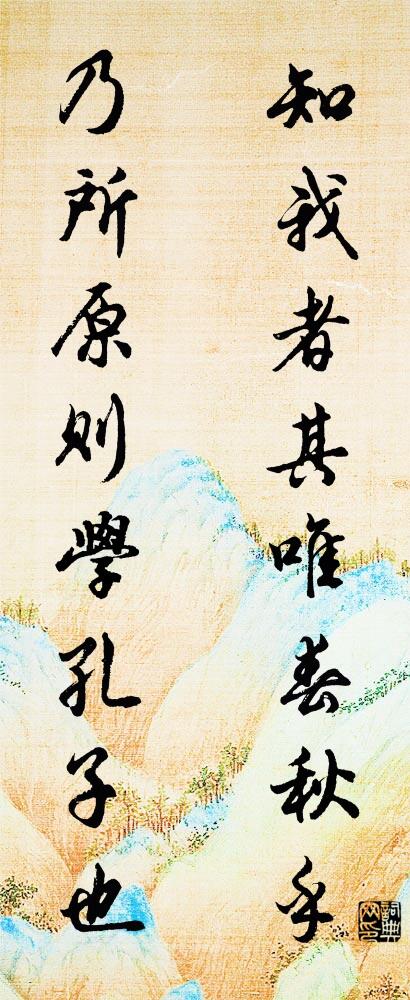 知我者其唯春秋乎
乃所原則學孔子也
詞典網印